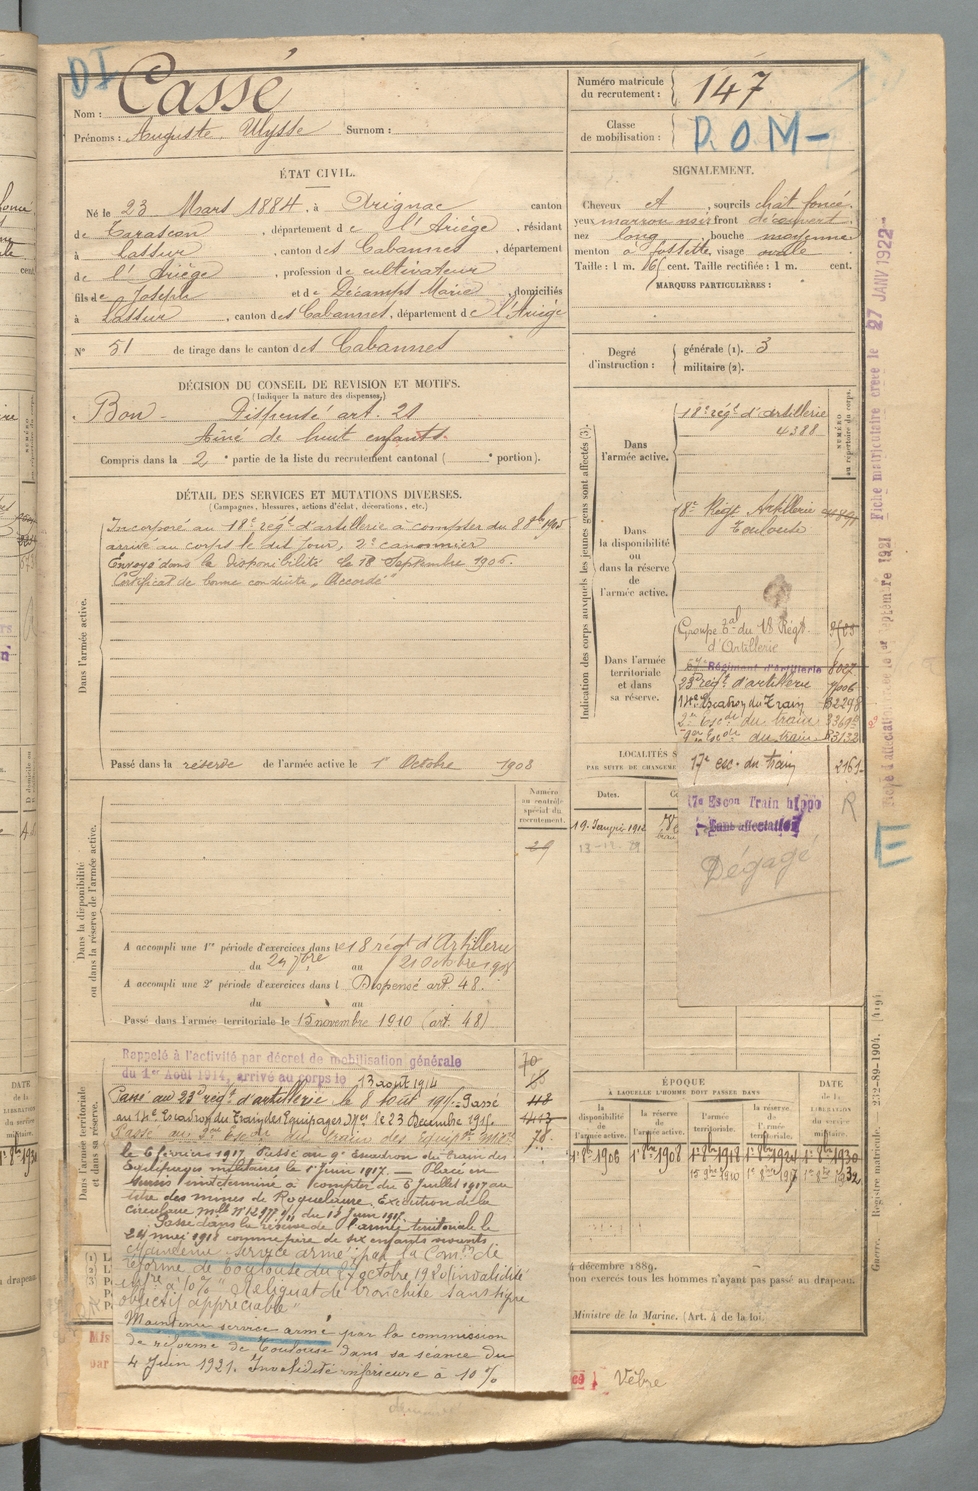 DI
Nom : Cassé
Prénoms : Auguste Ulysse Surnom :
Numéro matricule du recrutement : 147
Classe de mobilisation : D.O.M-
ÉTAT CIVIL.
Né le 23 Mars 1884, à Ornignac canton
de Tarascon, département de l'Ariège, résidant
à Lassur, canton des Cabannes, département
de l'Ariège, profession de cultivateur
fils de Joseph et de Décamps Marie, domiciliés
à Lassur, canton des Cabannes, département de l'Ariège
N° 51 de tirage dans le canton des Cabannes
SIGNALEMENT.
Cheveux et, sourcils chat. foncé
yeux marron noir front découvert
nez long, bouche moyenne
menton à fossette, visage ovale
Taille : 1 m. 65 cent. Taille rectifiée : 1 m. cent.
MARQUES PARTICULIÈRES :
Degré d'instruction : générale (1). 3
militaire (2).
DÉCISION DU CONSEIL DE REVISION ET MOTIFS.
(Indiquer la nature des dispenses.)
Bon. Dispensé art. 21
Aîné de huit enfants.
Compris dans la 2e partie de la liste du recrutement cantonal ( e portion).
DÉTAIL DES SERVICES ET MUTATIONS DIVERSES.
(Campagnes, blessures, actions d'éclat, décorations, etc.)
Dans l'armée active.
Incorporé au 18e régt d'artillerie à compter du 8 8bre 1905
arrivé au corps le dit jour, 2e canonnier
Envoyé dans la disponibilité le 18 Septembre 1906.
Certificat de bonne conduite "Accordé"
Passé dans la réserve de l'armée active le 1er Octobre 1908
Dans la disponibilité ou dans la réserve de l'armée active.
Numéro au contrôle spécial du recrutement.
A accompli une 1re période d'exercices dans le 18 régt d'Artillerie
du 29 7bre au 21 Octobre 1908
A accompli une 2e période d'exercices dans l Dispensé art. 48.
du au
Passé dans l'armée territoriale le 15 novembre 1910 (art. 48)
Dans l'armée territoriale et dans sa réserve.
Rappelé à l'activité par décret de mobilisation générale
du 1er Août 1914, arrivé au corps le 13 août 1914
Passé au 23e régt d'artillerie le 8 août 1915. Passé
au 14e Escadron du Train des Equipages Mres le 23 Décembre 1915.
Passé au 2e Escon du train des Equipes Mres
le 6 février 1917. Passé au 9e Escadron du train des
Equipages militaires le 1er Juin 1917. — Placé en
sursis indéterminé à compter du 5 Juillet 1917 au
titre des mines de Roquelaure. Exécution de la
circulaire mlle N° 12977 du 13 Juin 1917.
Passé dans la réserve de l'armée territoriale le
24 mai 1918 comme père de six enfants vivants
Maintenu service armé, par la Comon de
réforme de Toulouse du 27 octobre 1920 (invalidité
infre à 10% "Reliquat de bronchite sans signe
objectif appréciable"
Maintenu service armé par la commission
de réforme de Toulouse dans sa séance du
4 Juin 1921. Invalidité inférieure à 10 %
Indication des corps auxquels les jeunes gens sont affectés (3).
NUMÉRO au répertoire du corps.
Dans l'armée active. 18e régt d'Artillerie
4388
Dans la disponibilité ou dans la réserve de l'armée active.
18e Régt Artillerie
Toulouse
Dans l'armée territoriale et dans sa réserve.
Groupe tal du 18 Régt
d'Artillerie
57e Régiment d'Artillerie 8007
23e régt d'artillerie 7006
14e Escadron du Train
2e Escon du train
9e Escon du train
17e esc. du train 2161
17e Escon Train hippo
Sans affectation
R
Dégagé
LOCALITÉS S
PAR SUITE DE CHANGEME
Dates.
19 Janvier 1912
E
ÉPOQUE
À LAQUELLE L'HOMME DOIT PASSER DANS
la disponibilité de l'armée active.
la réserve de l'armée active.
l'armée territoriale.
la réserve de l'armée territoriale.
DATE de la LIBÉRATION du service militaire.
1er 8bre 1906
1er 8bre 1908
1er 8bre 1918
1er 8bre 1924
1er 8bre 1930
15 9bre 1910
1er 8bre 1932
4 décembre 1889.
non exercés tous les hommes n'ayant pas passé au drapeau.
Ministre de la Marine. (Art. 4 de la loi.
Vèbre
Fiche d'affectation créée le 1er Septembre 1921 Fiche matriculaire créée le 27 JANV 1922
Guerre. Registre matricule. 232-89-1904. [419]